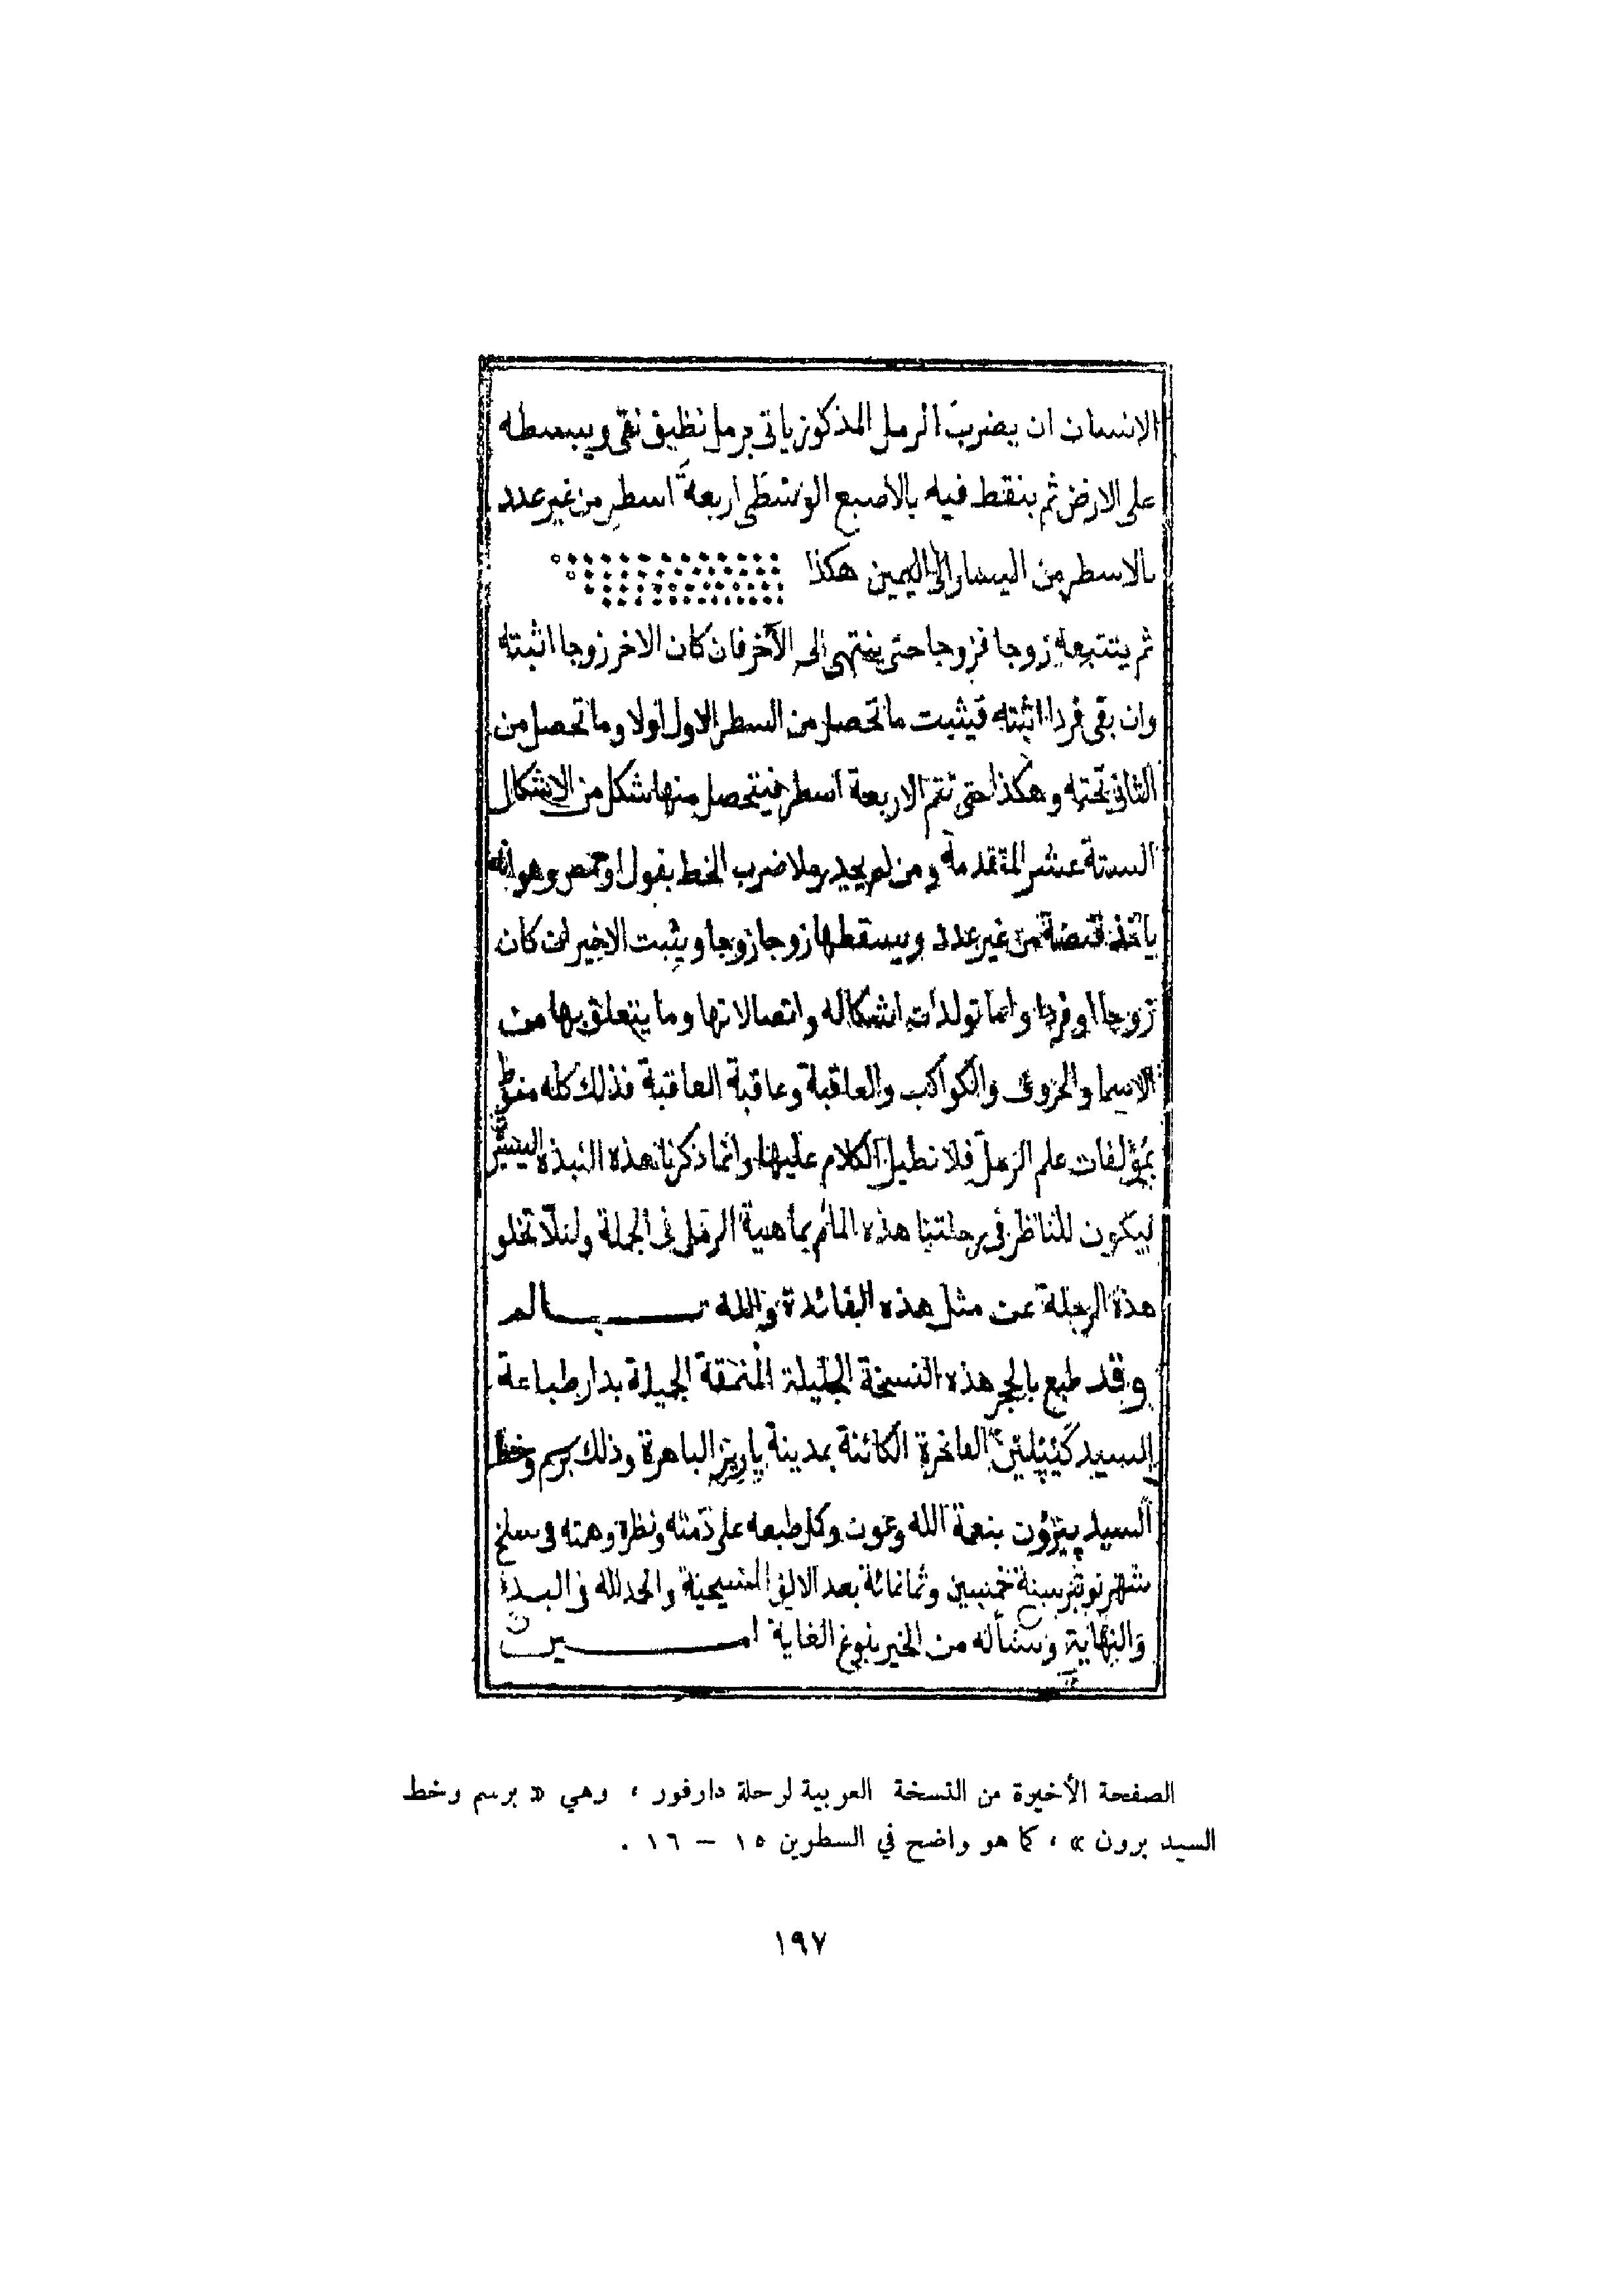 الانسان ان يضرب الرمل المذكور ياتى برمل نظيف نقى ويبسطه
على الارض ثم ينقط فيه بالاصبع الوسطى اربعة اسطر من غير عدد
بالاسطر من اليسار الى اليمين هكذا
ثم يتتبعه زوجا فزوجا حتى ينتهى الى الآخر فان كان الاخر زوجا اثبته
وان بقى فردا اثبته فيثبت ما تحصل من السطر الاول اولا وما تحصل من
الثانى تحته وهكذا حتى تتم الاربعة اسطر فيتحصل منها شكل من الاشكال
الستة عشر المتقدمة ومن لم يجد رملا ضرب الخط بفول او حمص وهو انه
ياخذ قبضة من غير عدد ويسقطها زوجا زوجا ويثبت الاخير ان كان
زوجا او فردا واما تولدات اشكاله واتصالاتها وما يتعلق بها من
الاسما والحروف والكواكب والعاقبة وعاقبة العاقبة فذلك كله منوط
بمؤلفات علم الرمل فلا نطيل الكلام عليها وانما ذكرنا هذه النبذة اليسيرة
ليكون للناظر فى رحلتنا هذه المام بماهية الرمل فى الجملة ولئلا تخلو
هذه الرحلة عن مثل هذه الفائدة والله
وقد طبع بالحجر هذه النسخة الجليلة المنمقة الجميلة بدار طباعة
السيد كيپلين الفاخرة الكائنة بمدينة پاريز الباهرة وذلك برسم وخط
السيد پيرون بنعمة الله وعون وكل طبعه على ذمته ونظره وهمته فى سلخ
شهر نوڤمبر سنة خمسين وثمانمائة بعد الالف المسيحية والحمد لله فى البدء
والنهاية ونسأله من الخير بلوغ الغاية امين
الصفحة الأخيرة من النسخة العربية لرحلة دارفور ، وهي « برسم وخط
السيد برون » ، كما هو واضح في السطرين ١٥ – ١٦ .
١٩٧